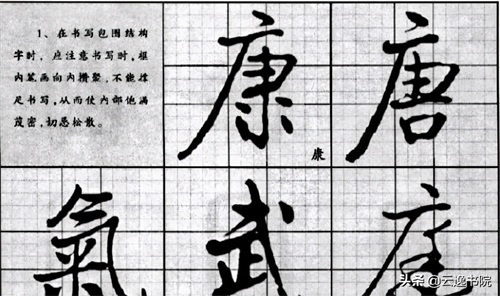 1、在书写包围结构
字时，应注意书写时，框
内笔画向内攒聚，不能撑
足书写，从而使内部饱满
茂密，切忌松散。
康 唐
康
氣 武
头条 @云逸书院